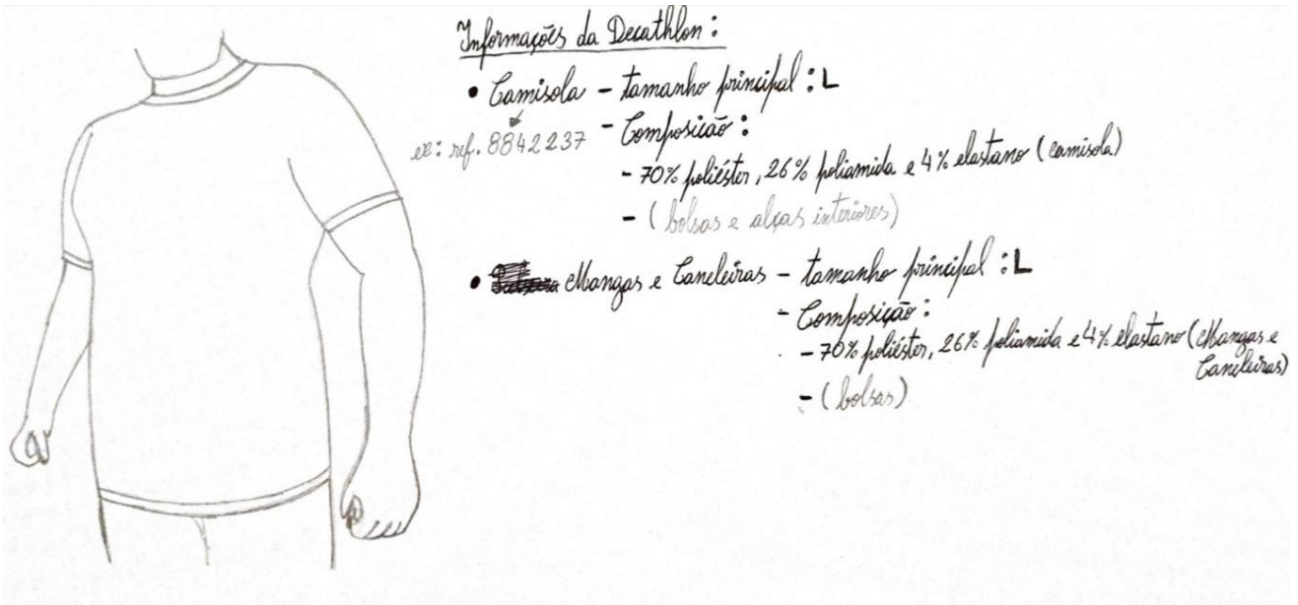 Informações da Decathlon :
• Camisola - tamanho principal : L
ex: ref. 8842237
- Composição :
- 70% poliéster, 26% poliamida e 4% elastano (camisola)
- (bolsas e alças interiores)
• Mangas e Caneleiras - tamanho principal : L
- Composição :
- 70% poliéster, 26% poliamida e 4% elastano (Mangas e
Caneleiras)
- (bolsas)